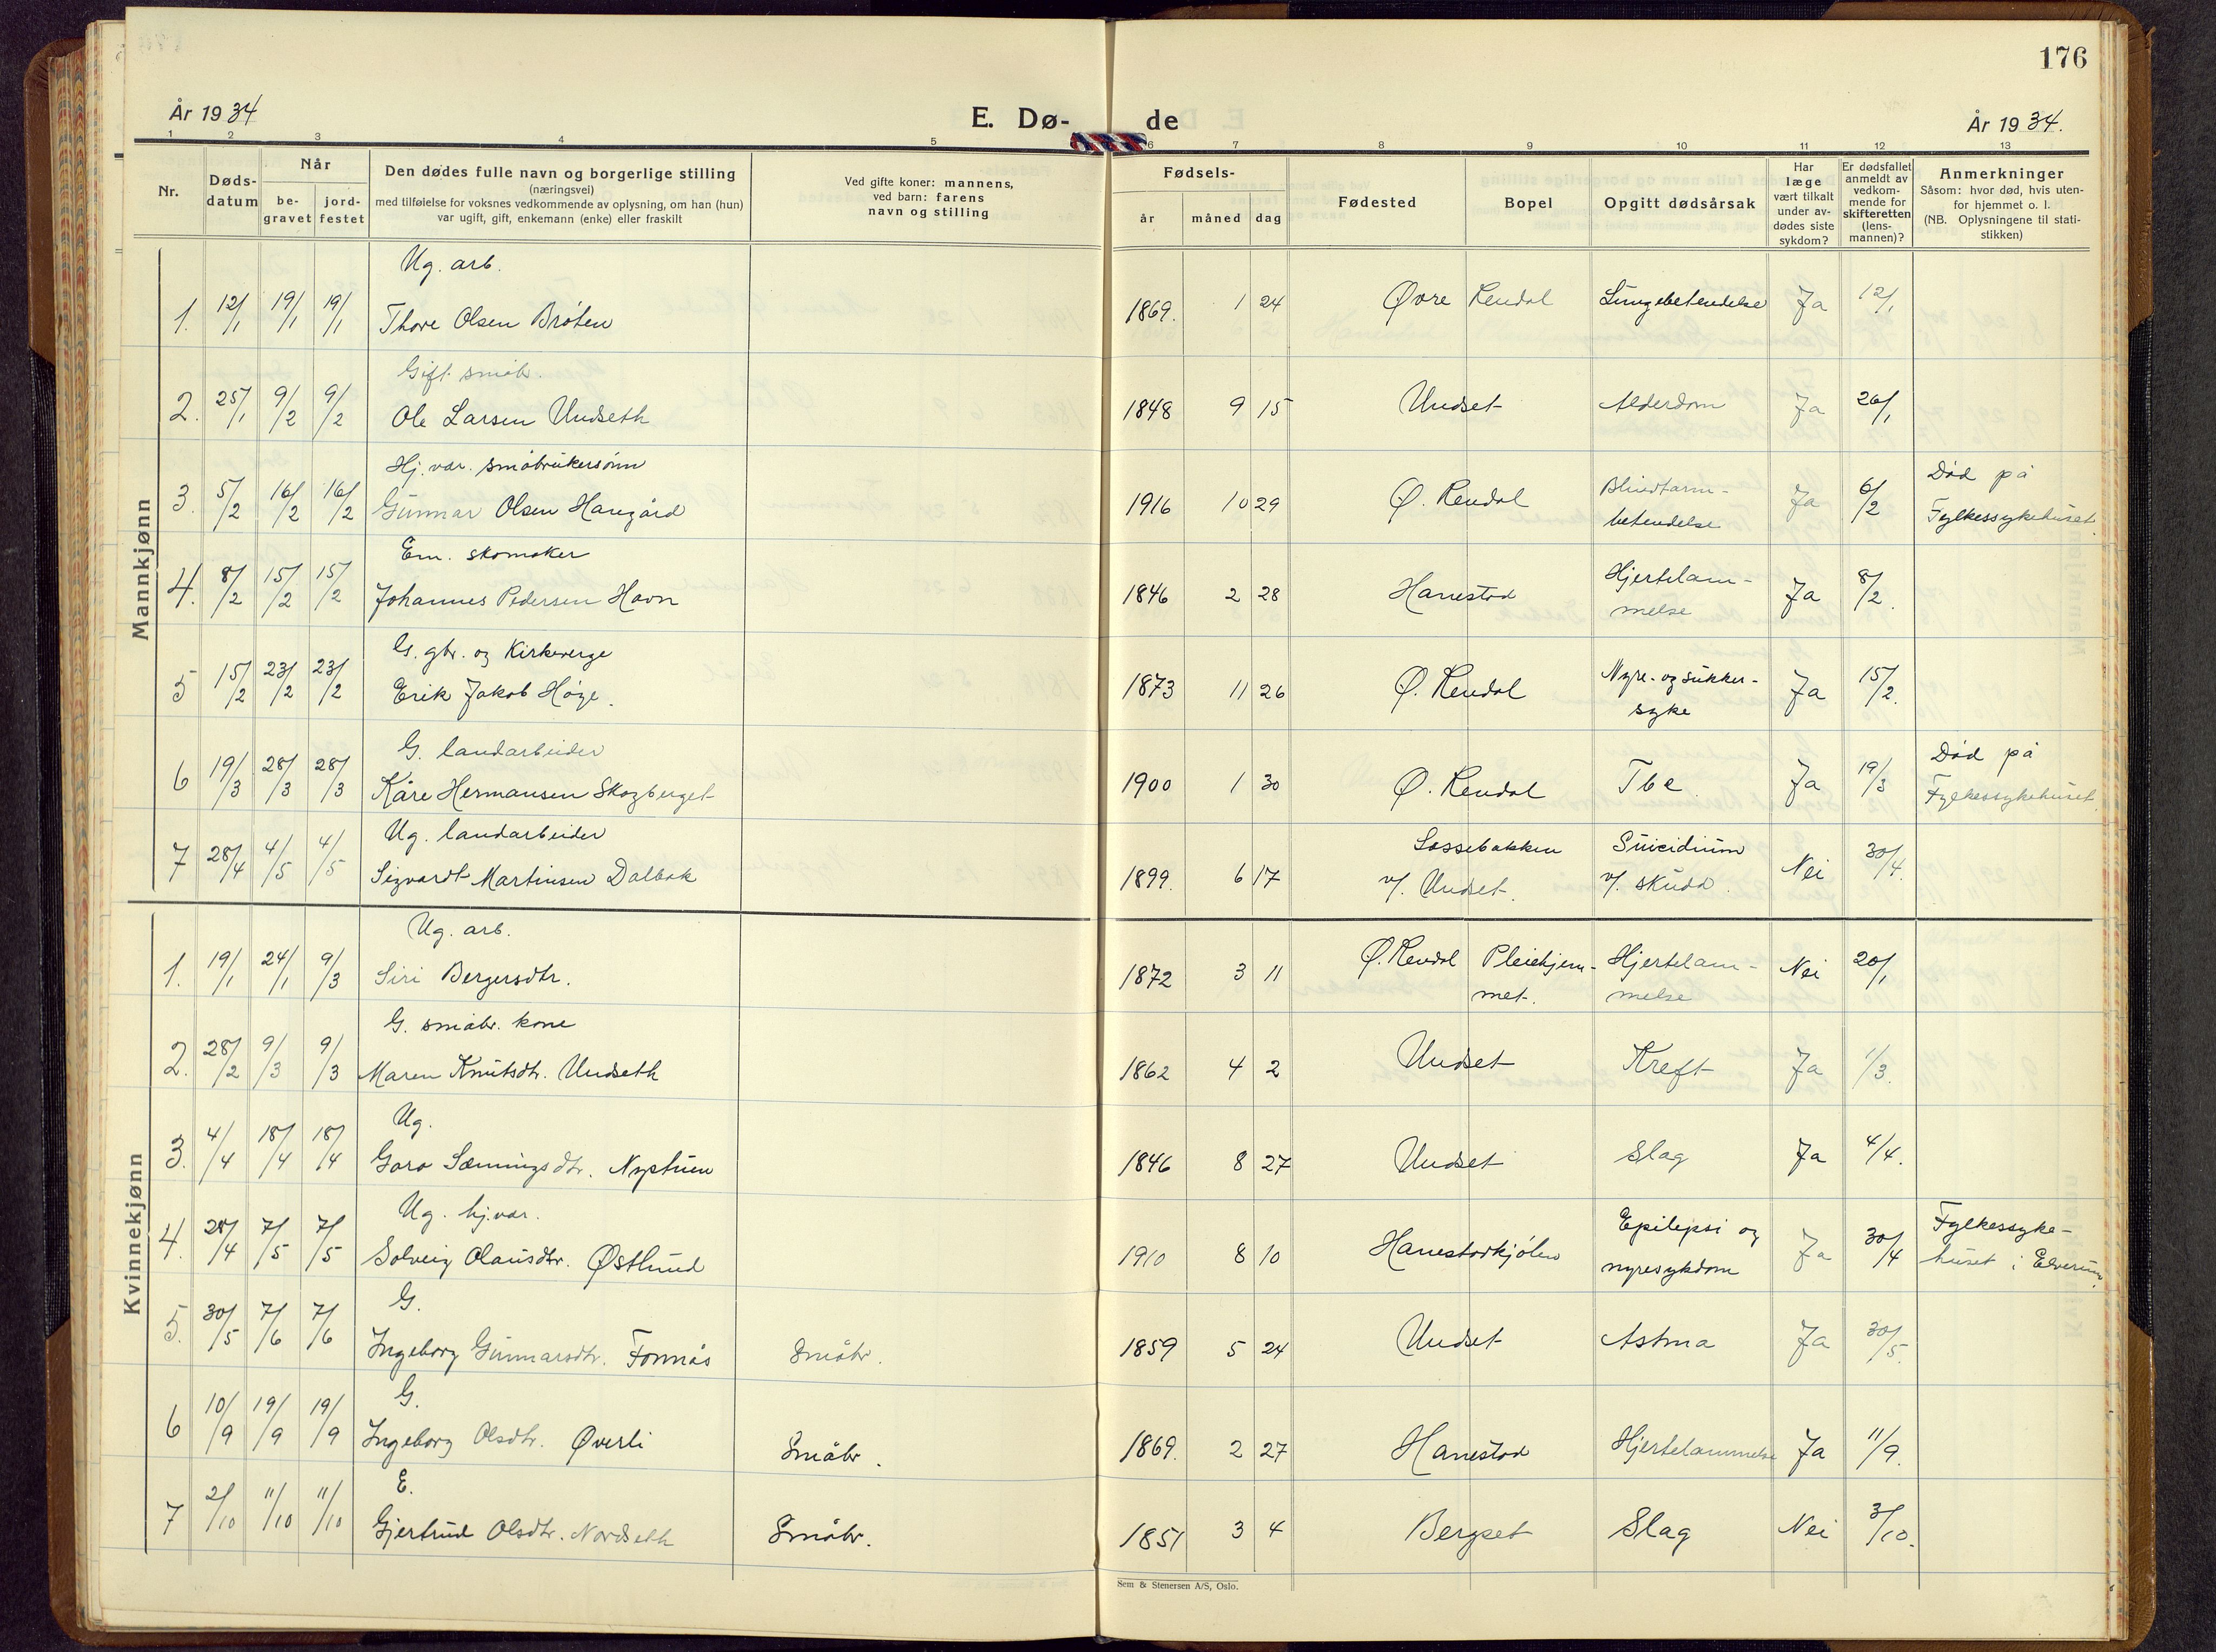 176
År 1934
E. Dø-
de
År 1934.
1 2 3 4 5 6 7 8 9 10 11 12 13
Nr.
Døds-
datum
Når
be-
gravet
jord-
festet
Den dødes fulle navn og borgerlige stilling
(næringsvei)
med tilføielse for voksnes vedkommende av oplysning, om han (hun)
var ugift, gift, enkemann (enke) eller fraskilt
Ved gifte koner: mannens,
ved barn: farens
navn og stilling
Fødsels-
år
måned
dag
Fødested
Bopel
Opgitt dødsårsak
Har
læge
vært tilkalt
under av-
dødes siste
sykdom?
Er dødsfallet
anmeldt av
vedkom-
mende for
skifteretten
(lens-
mannen)?
Anmerkninger
Såsom: hvor død, hvis uten-
for hjemmet o. l.
(NB. Oplysningene til stati-
stikken)
Mannkjønn
Ug. arb.
1. 12/1 19/1 19/1 Thore Olsen Bråten 1869. 1 24 Øvre Rendal Lungebetendelse Ja 12/1
Gift småbr.
2. 25/1 9/2 9/2 Ole Larsen Undseth 1848 9 15 Undset Alderdom Ja 26/1
Hj. vær. småbrukersønn Blindtarm- Død på
3. 5/2 16/2 16/2 Gunnar Olsen Hangård 1916 10 29 Ø. Rendal betendelse Ja 6/2 Fylkessykehuset.
Em. skomaker Hjertelam-
4. 8/2 15/2 15/2 Johannes Pedersen Havn 1846 2 28 Hanestad melse Ja 8/2.
G. gbr. og Kirkeverge Nyre- og sukker-
5 15/2 23/2 23/2 Erik Jakob Høye. 1873 11 26 Ø. Rendal syke Ja 15/2.
G. landarbeider Død på
6 19/3 28/3 28/3 Kåre Hermansen Skogberget 1900 1 30 Ø. Rendal Tbc. Ja 19/3 Fylkessykehuset.
Ug. landarbeider Lossebakken Suicidium
7 28/4 4/5 4/5 Sigvardt Martinsen Dalbak 1899. 6 17 v/. Undset. v/. skudd. Nei 30/4.
Kvinnekjønn
Ug. arb. Ø. Rendal Pleiehjem- Hjertelam-
1. 19/1 24/1 9/3 Siri Bergersdtr. 1872 3 11 met. melse Nei 20/1
G. småbr. kone
2. 28/2 9/3 9/3 Maren Knutsdtr. Undseth 1862 4 2 Undset Kreft Ja 1/3.
Ug.
3. 4/4 18/4 18/4 Goro Sæmingsdtr. Nyptuen 1846 8 27 Undset Slag Ja 4/4.
Ug. hj. vær. Epilepsi og Fylkessyke-
4. 28/4 7/5 7/5 Solveig Olausdtr. Østlund 1910 8 10 Hanestadkjølen nyresykdom Ja 30/4 huset i Elverum.
G.
5. 30/5 7/6 7/6 Ingeborg Gunnarsdtr. Fonnås Småbr. 1859 5 24 Undset Astma Ja 30/5.
G.
6 10/9 19/9 19/9 Ingeborg Olsdtr. Øverli Småbr. 1869. 2 27 Hanestad Hjertelammelse Ja 11/9.
E.
7 2/10 11/10 11/10 Gjertrud Olsdtr. Nordseth Småbr. 1851 3 4 Bergset Slag Nei 3/10.
Sem & Stenersen A/S, Oslo.